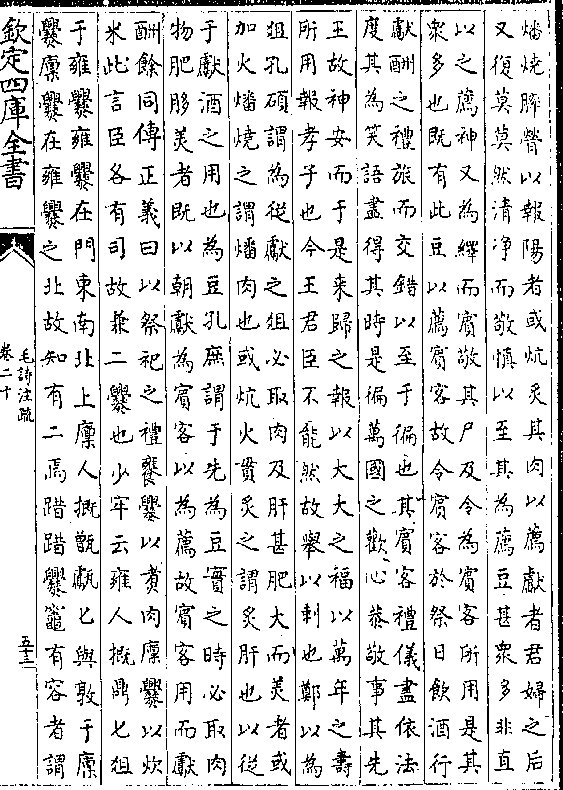 燔燒膟膋以報陽者或炕炙其肉以薦獻者君婦之后
又復莫莫然清净而敬慎以至其為薦豆甚衆多非直
以之薦神又為繹而賓敬其尸及令為賓客所用是其
衆多也既有此豆以薦賓客故令賓客於祭日飲酒行
獻酬之禮旅而交錯以至于徧也其賓客禮儀盡依法
度其為笑語盡得其時是徧萬國之歡心恭敬事其先
王故神安而于是来歸之報以大大之福以萬年之壽
所用報孝子也今王君臣不能然故舉以刺也鄭以為
俎孔碩謂為從獻之俎必取肉及肝甚肥大而美者或
加火燔燒之謂燔肉也或炕火貫炙之謂炙肝也以從
于獻酒之用也為豆孔庶謂于先為豆實之時必取肉
物肥胳美者既以朝獻為賓客以為薦故賓客用而獻
酬餘同傳正義曰以祭祀之禮饔爨以煑肉廩爨以炊
米此言臣各有司故兼二爨也少牢云雍人摡鼎匕俎
于雍爨雍爨在門東南北上廩人摡甑甗匕與敦于廩
爨廩爨在雍爨之北故知有二焉踖踖爨竈有容者謂
欽定四庫全書
毛詩注疏
卷二十
五十三